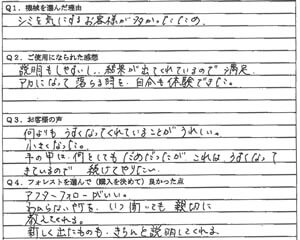 Q1. 機械を選んだ理由
シミを気にするお客様が多かったため。
Q2. ご使用になられた感想
説明もしやすいし、結果が出てくれているので満足。
アカになって落ちる時を、自分も体験できた。
Q3. お客様の声
何よりも うすくなってくれていることがうれしい。
小さくなった。
手の甲は、何をしてもだめだったが これは、うすくなって
きているので 続けてやりたい。
Q4. フォレストを選んで(購入を決めて)良かった点
アフターフォローがいい。
わからない所を、いつ聞いても 親切に
教えてくれる。
新しく出たものも、きちんと説明してくれる。